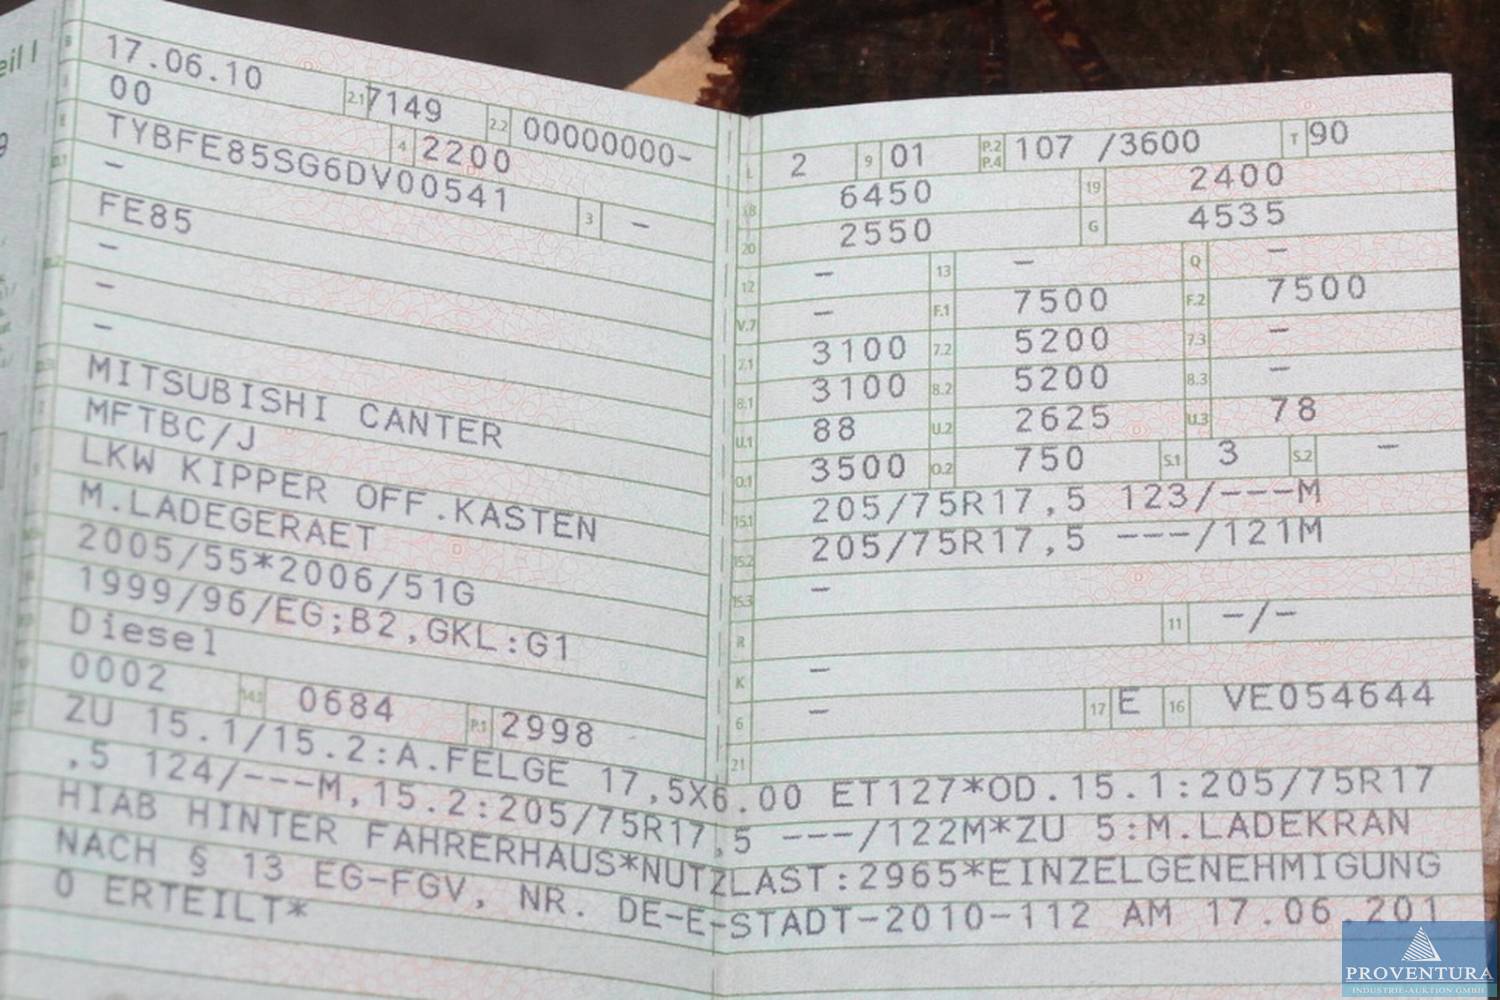 eil I
B 17.06.10 2.1 7149 2.2 00000000-
J 00 4 2200
E TYBFE85SG6DV00541 3 -
D.1 -
FE85
-
D.2 -
-
D.3 MITSUBISHI CANTER
MFTBC/J
LKW KIPPER OFF.KASTEN
M.LADEGERAET
2005/55*2006/51G
1999/96/EG;B2,GKL:G1
Diesel
0002 14.1 0684 P.1 2998
L 2 9 01 P.2 P.4 107 /3600 T 90
18 6450 19 2400
20 2550 G 4535
12 - 13 - Q -
V.7 - F.1 7500 F.2 7500
7.1 3100 7.2 5200 7.3 -
8.1 3100 8.2 5200 8.3 -
U.1 88 U.2 2625 U.3 78
O.1 3500 O.2 750 S.1 3 S.2 -
15.1 205/75R17,5 123/---M
15.2 205/75R17,5 ---/121M
15.3 -
R 11 -/-
K -
6 - 17 E 16 VE054644
21
ZU 15.1/15.2:A.FELGE 17,5X6.00 ET127*OD.15.1:205/75R17
,5 124/---M,15.2:205/75R17,5 ---/122M*ZU 5:M.LADEKRAN
HIAB HINTER FAHRERHAUS*NUTZLAST:2965*EINZELGENEHMIGUNG
NACH § 13 EG-FGV, NR. DE-E-STADT-2010-112 AM 17.06.201
0 ERTEILT*
PROVENTURA
INDUSTRIE-AUKTION GMBH